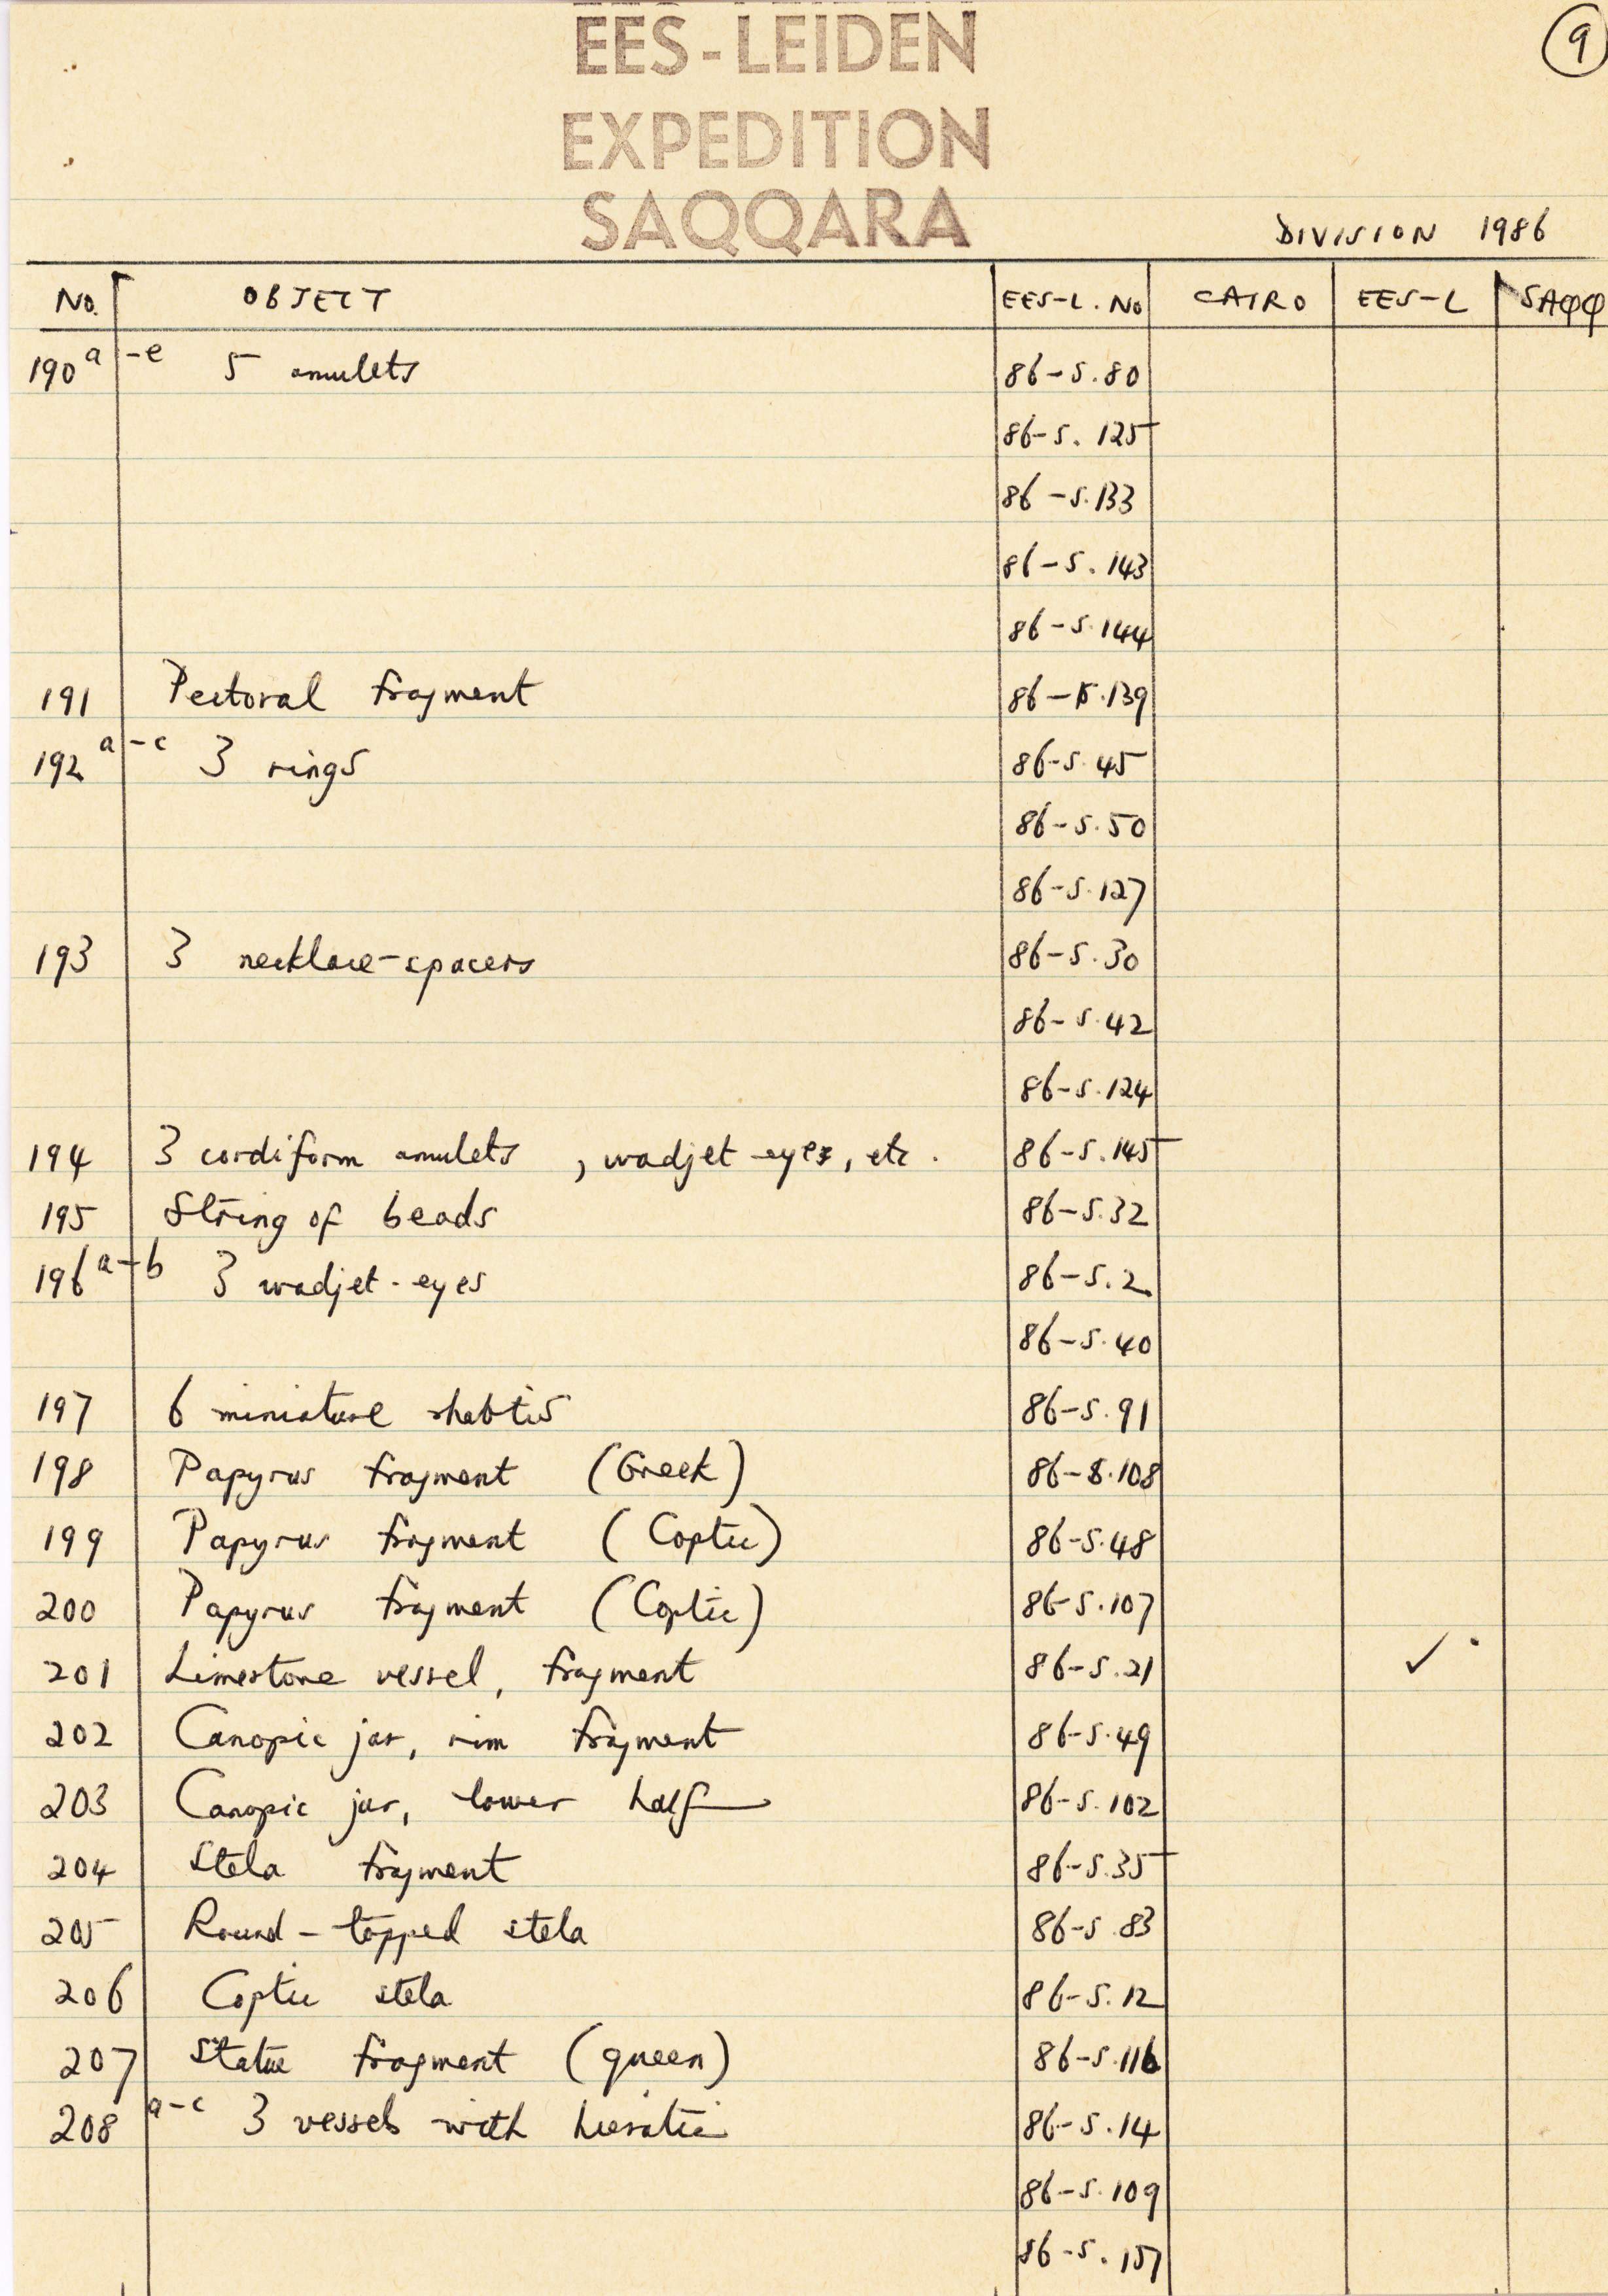 EES-LEIDEN
EXPEDITION
SAQQARA
9
DIVISION 1986
No. OBJECT EES-L. No CAIRO EES-L SAQQ
190 a-e 5 amulets 86-S.80
86-S.125
86-S.133
86-S.143
86-S.144
191 Pectoral fragment 86-S.139
192 a-c 3 rings 86-S.45
86-S.50
86-S.127
193 3 necklace-spacers 86-S.30
86-S.42
86-S.124
194 3 cordiform amulets, wadjet-eyes, etc. 86-S.145
195 String of beads 86-S.32
196 a-b 3 wadjet-eyes 86-S.2
86-S.40
197 6 miniature shabtis 86-S.91
198 Papyrus fragment (Greek) 86-S.108
199 Papyrus fragment (Coptic) 86-S.48
200 Papyrus fragment (Coptic) 86-S.107
201 Limestone vessel, fragment 86-S.21 ✓
202 Canopic jar, rim fragment 86-S.49
203 Canopic jar, lower half 86-S.102
204 Stela fragment 86-S.35
205 Round-topped stela 86-S.83
206 Coptic stela 86-S.12
207 Statue fragment (queen) 86-S.116
208 a-c 3 vessels with hieratic 86-S.14
86-S.109
86-S.157